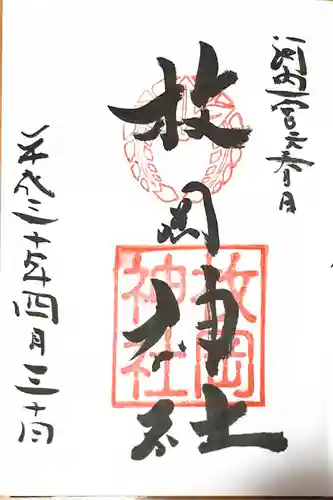 河内一宮元春日
枚岡神社
枚岡神社
平成三十年四月三十日